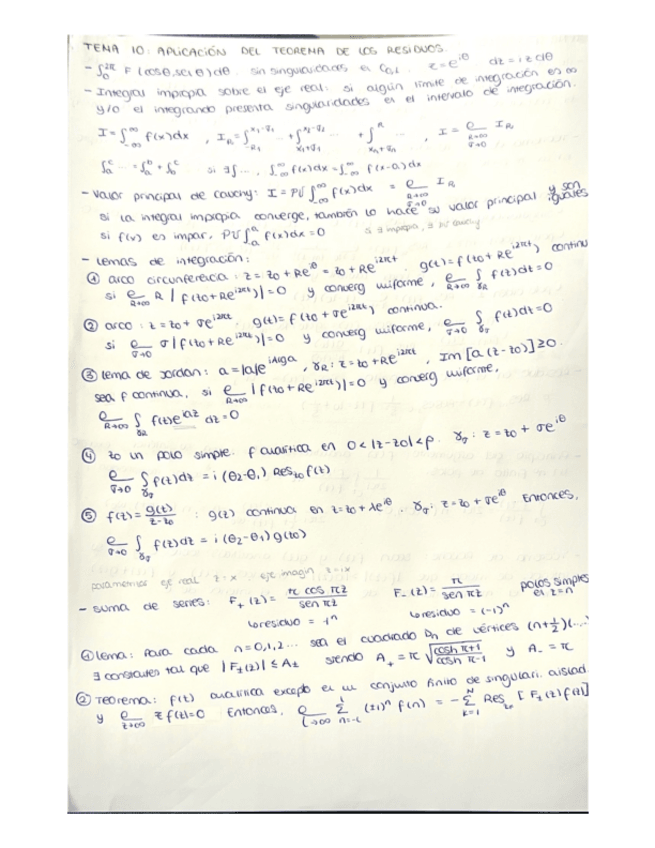 TEMA 10: APLICACIÓN DEL TEOREMA DE LOS RESIDUOS.
- ∫₀^{2π} F(cosθ, senθ) dθ. sin singularidades en C₀,₁. z = e^{iθ} dz = i z dθ
- Integral impropia sobre el eje real: si algún límite de integración es ∞
y/o el integrando presenta singularidades en el intervalo de integración.
I = ∫_{-∞}^{∞} f(x)dx , I_R = ∫_{-R₁}^{x₁-σ₁} ... + ∫_{x₁+σ₁}^{x₂-σ₂} ... + ∫_{xₙ+σₙ}^{R} ... , I = ℓ_{R→∞ σ→0} I_R,
∫_a^c ... = ∫_a^b + ∫_b^c si ∃ ∫... , ∫_{-∞}^{∞} f(x)dx = ∫_{-∞}^{∞} f(x-a)dx
- Valor principal de Cauchy: I = PV ∫_{-∞}^{∞} f(x)dx = ℓ_{R→∞ σ→0} I_R
si la integral impropia converge, también lo hace su valor principal y son iguales
si f(x) es impar, PV ∫_{-a}^{a} f(x)dx = 0 si ∃ impropia, ∃ PV cauchy
- Lemas de integración:
① arco circunferencia: z = z₀ + Re^{iθ} = z₀ + Re^{i2πt} g(t) = f(z₀ + Re^{i2πt}) continua
si ℓ_{R→∞} R |f(z₀+Re^{i2πt})| = 0 y converg uniforme, ℓ_{R→∞} ∫_{γR} f(z)dz = 0
② arco: z = z₀ + σe^{i2πt} g(t) = f(z₀ + σe^{i2πt}) continua.
si ℓ_{σ→0} σ |f(z₀+Re^{i2πt})| = 0 y converg uniforme, ℓ_{σ→0} ∫_{γσ} f(z)dz = 0
③ lema de Jordan: a = |a|e^{iArga} , γR: z = z₀ + Re^{i2πt} , Im[a(z-z₀)] ≥ 0.
sea f continua, si ℓ_{R→∞} |f(z₀+Re^{i2πt})| = 0 y converg uniforme,
ℓ_{R→∞} ∫_{γR} f(z)e^{iaz} dz = 0
④ z₀ un polo simple. f analítica en 0 < |z-z₀| < ρ. γσ: z = z₀ + σe^{iθ}
ℓ_{σ→0} ∫_{γσ} f(z)dz = i(θ₂-θ₁) Res_{z₀} f(z)
⑤ f(z) = g(z)/(z-z₀) : g(z) continua en z = z₀ + λe^{iθ}. γσ: z = z₀ + σe^{iθ}. Entonces,
ℓ_{σ→0} ∫_{γσ} f(z)dz = i(θ₂-θ₁) g(z₀)
parametrizo eje real z=x eje imagin z=ix
- Suma de series: F₊(z) = π cos πz / sen πz F₋(z) = π / sen πz polos simples en z=n
↳ residuo = 1ⁿ ↳ residuo = (-1)ⁿ
① Lema: Para cada n = 0,1,2... sea el cuadrado Dₙ de vértices (n+½)(...
∃ constantes tal que |F±(z)| ≤ A± siendo A₊ = π √(cosh π+1 / cosh π-1) y A₋ = π
② Teorema: f(z) analítica excepto en un conjunto finito de singulari. aislad.
y ℓ_{z→∞} z f(z) = 0 Entonces, ℓ_{L→∞} Σ_{n=-L}^{L} (±1)ⁿ f(n) = - Σ_{k=1}^{N} Res_{z₀} [F±(z) f(z)]